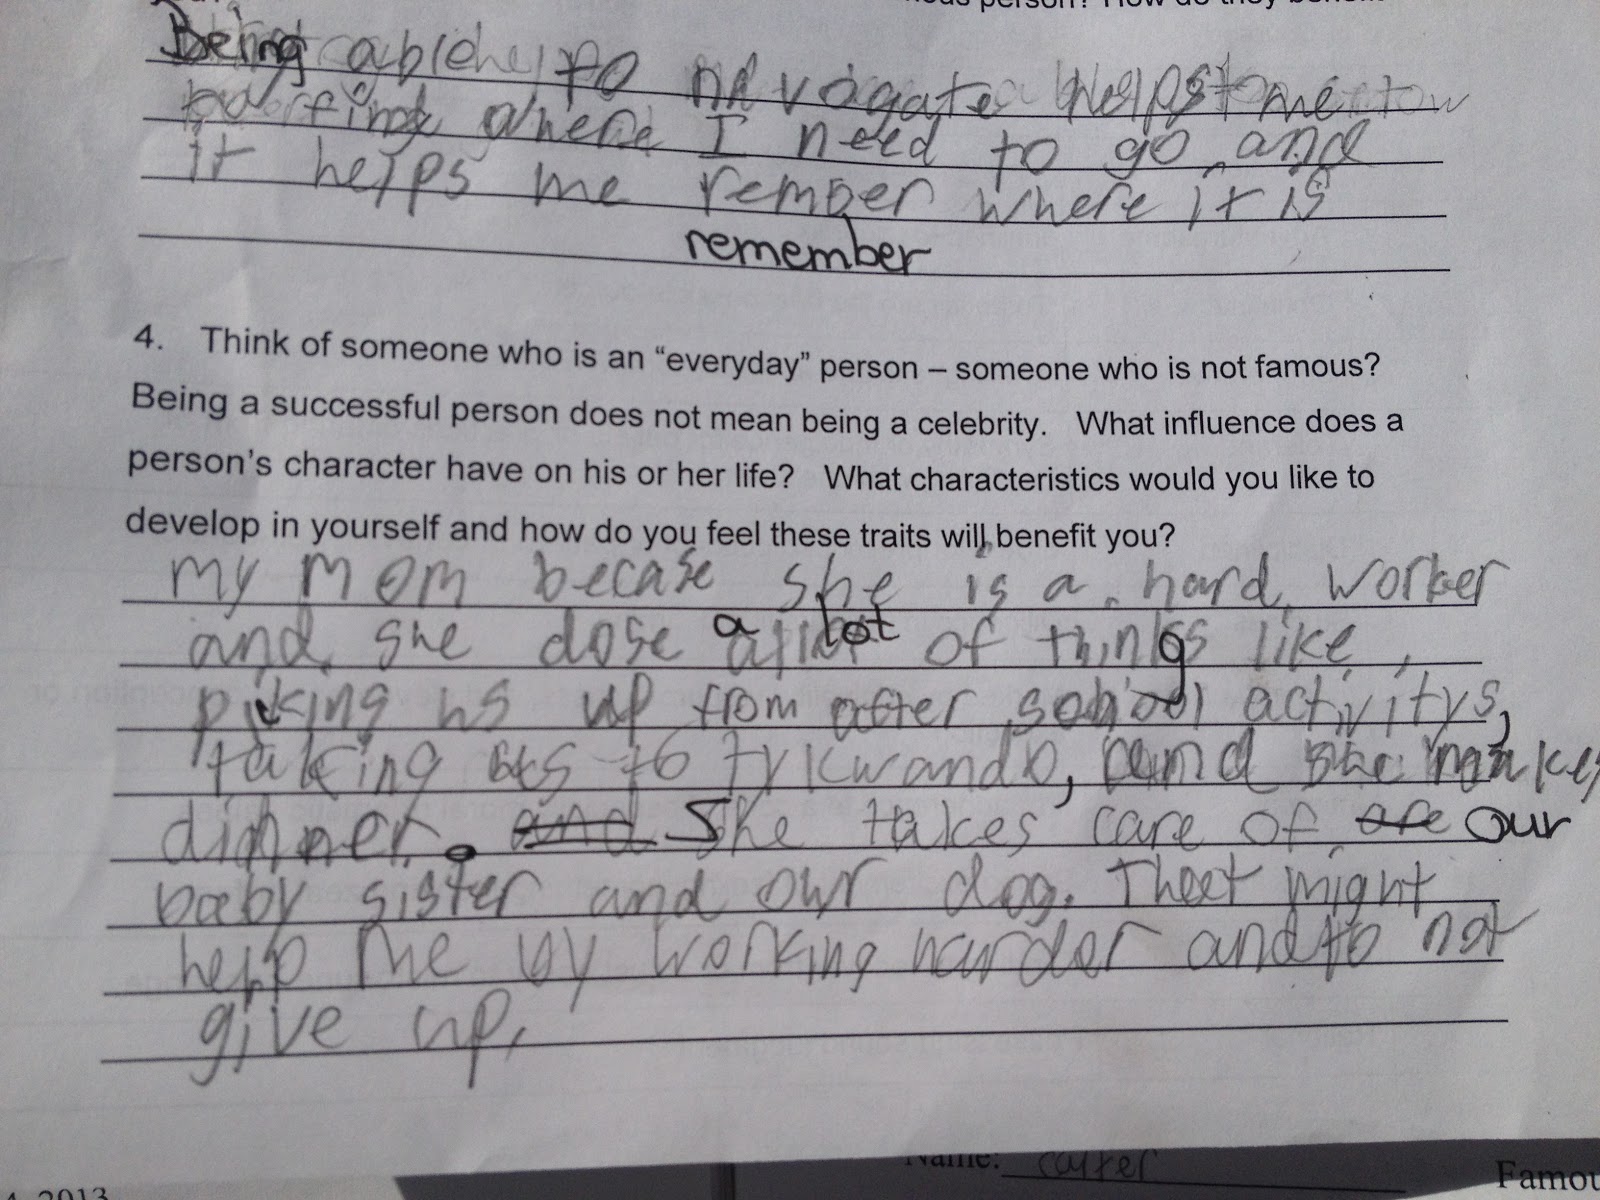 Being able to navagate helps me
to find where I need to go and
it helps me rember where it is
remember
4. Think of someone who is an “everyday” person – someone who is not famous?
Being a successful person does not mean being a celebrity. What influence does a
person's character have on his or her life? What characteristics would you like to
develop in yourself and how do you feel these traits will benefit you?
my mom becase she is a hard worker
and she dose a lot of things like,
picking us up from after school activitys,
taking us to tykwando, and she makes
dinner. and She takes care of are our
baby sister and our dog. That might
help me by working harder and to not
give up.
Name: carter
4, 2013
Famou